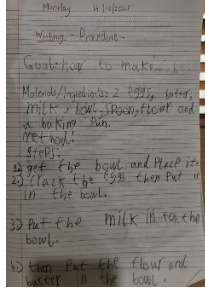 Monday 4/10/2021
Writing - Procedure -
Goal: how to make
Materials/Ingredients: 2 eggs, butter,
milk, bowl, spoon, flour and
a baking pan.
method:
steps:
1) get the bowl and place it
2) crack the eggs then put it
in the bowl.
3) Put the milk into the
bowl.
4) then put the flour and
butter in the bowl.